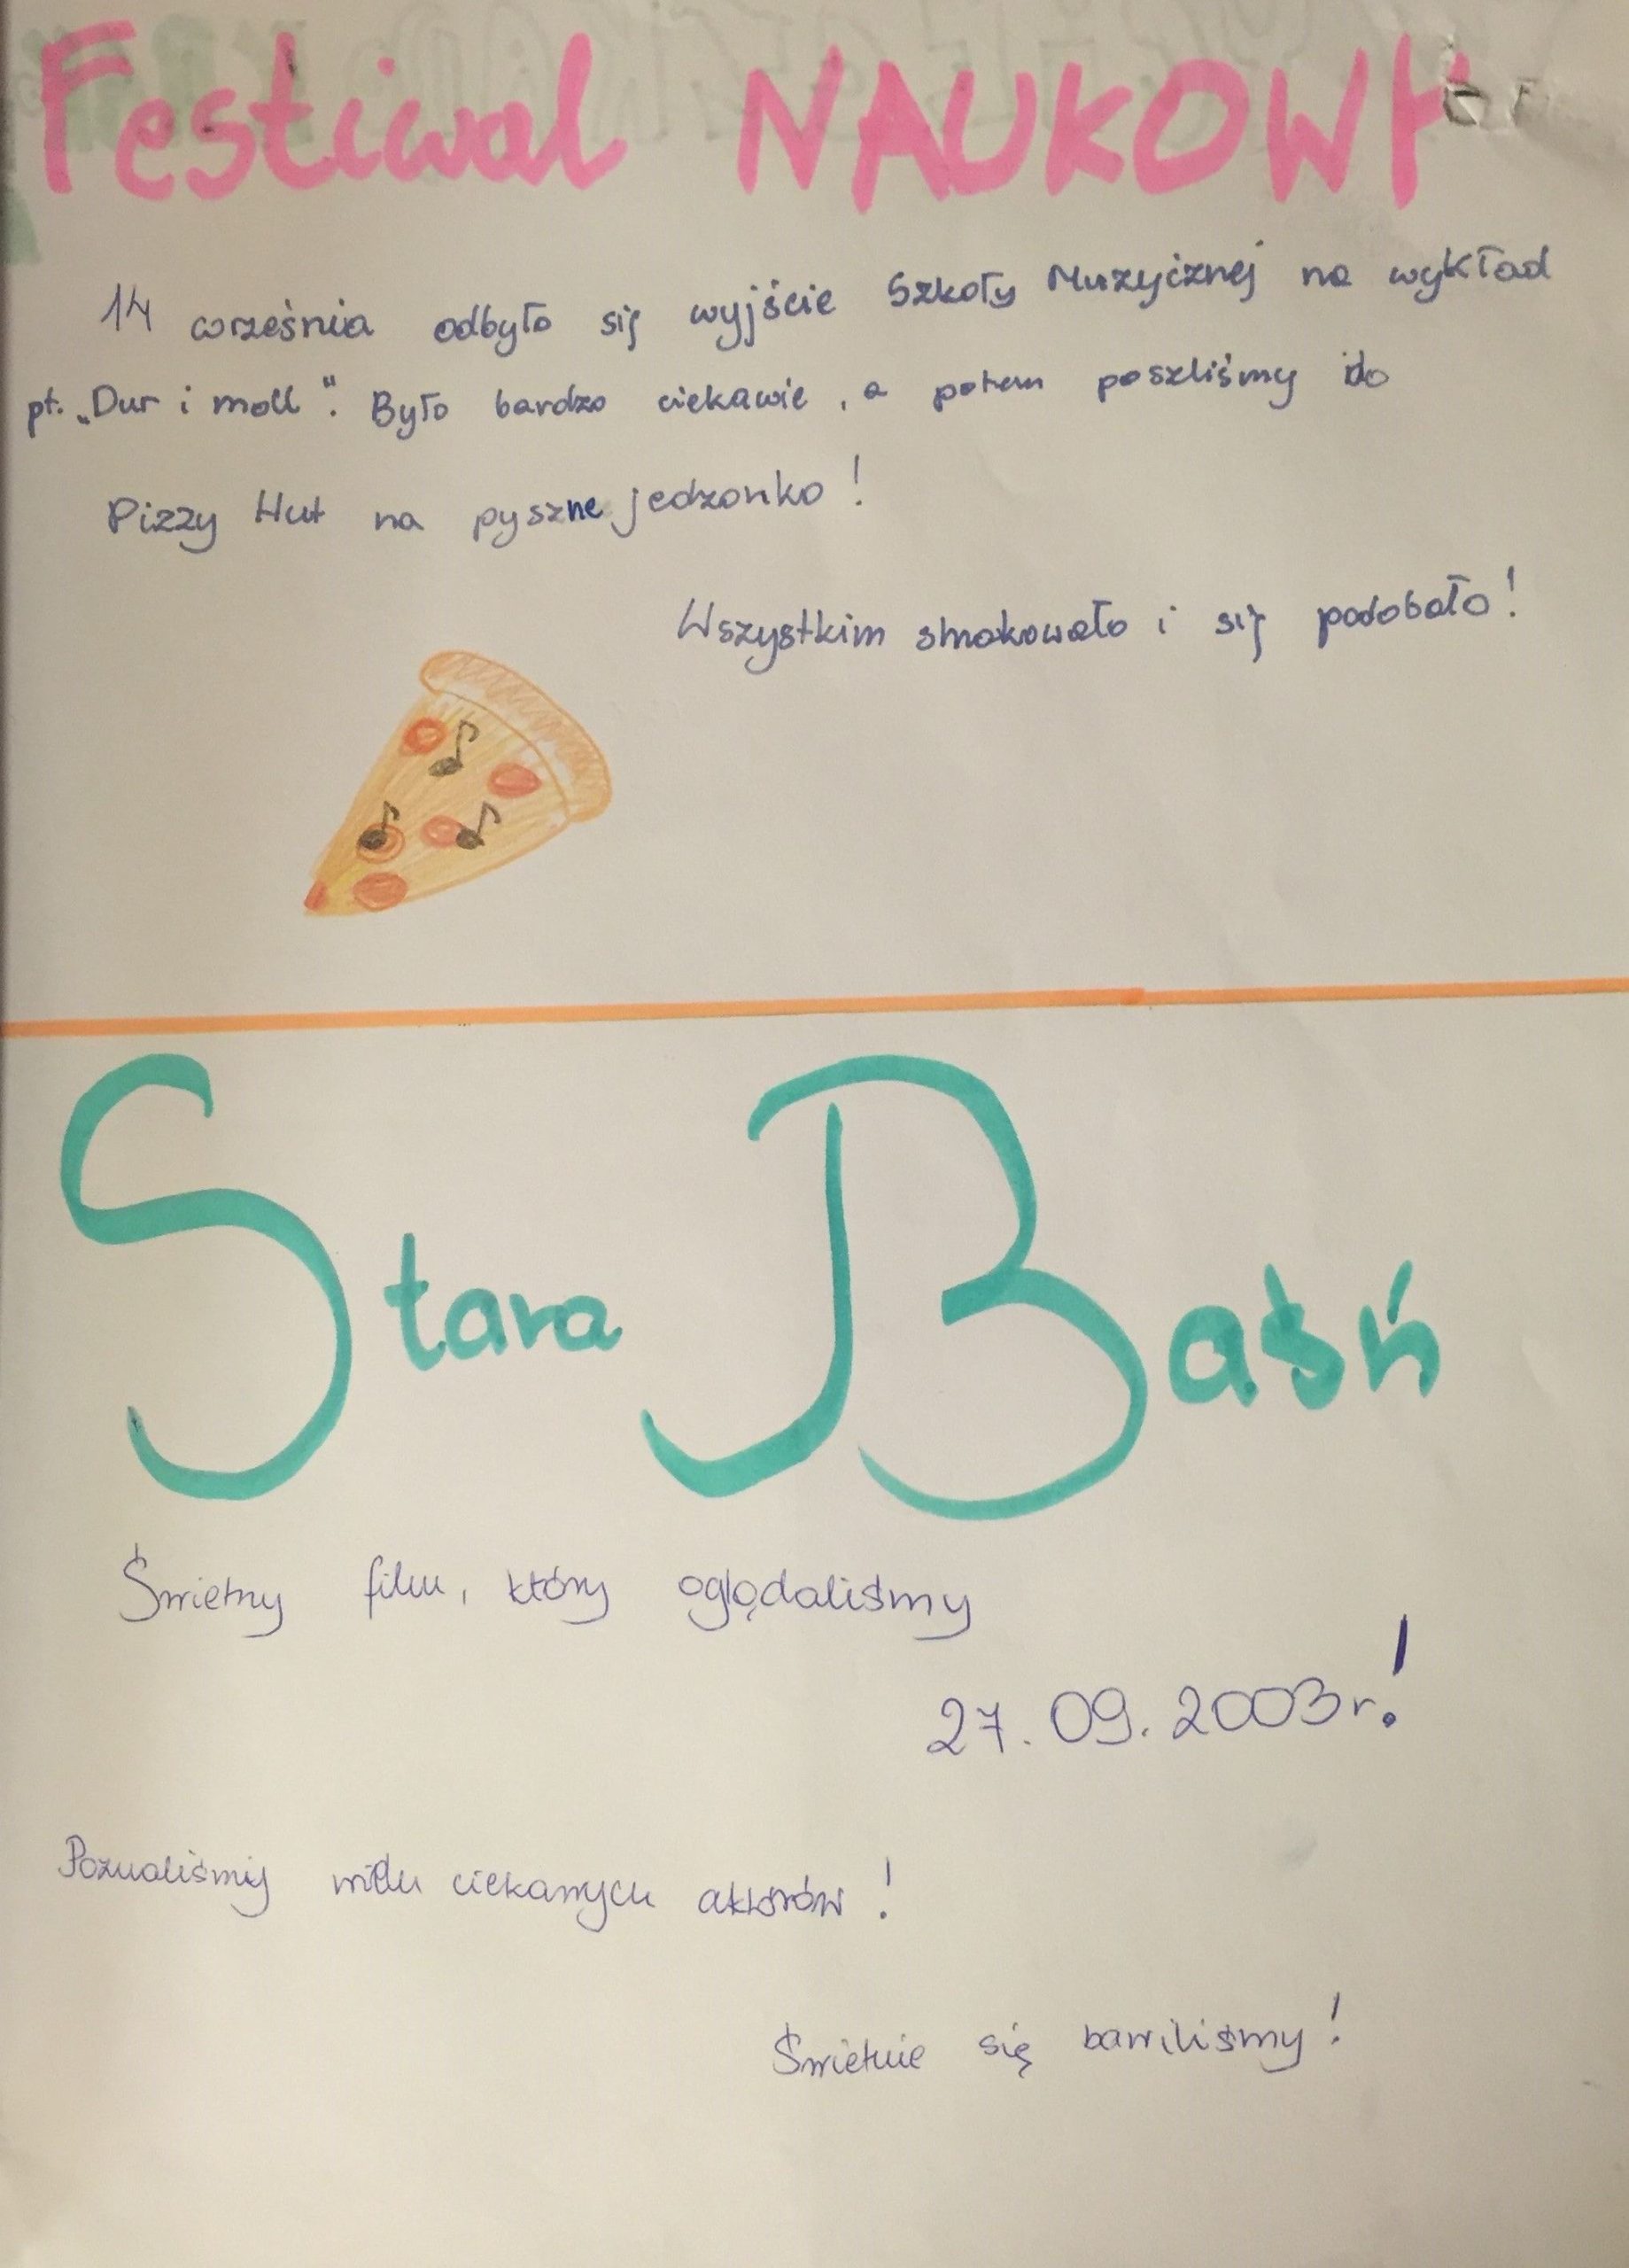 Festiwal NAUKOWY
14 września odbyło się wyjście Szkoły Muzycznej na wykład
pt. „Dur i moll". Było bardzo ciekawie, a potem poszliśmy do
Pizzy Hut na pyszne jedzonko!
Wszystkim smakowało i się podobało!
Stara Baśń
Świetny film, który oglądaliśmy
27.09.2003r.!
Poznaliśmy wielu ciekawych aktorów!
Świetnie się bawiliśmy!